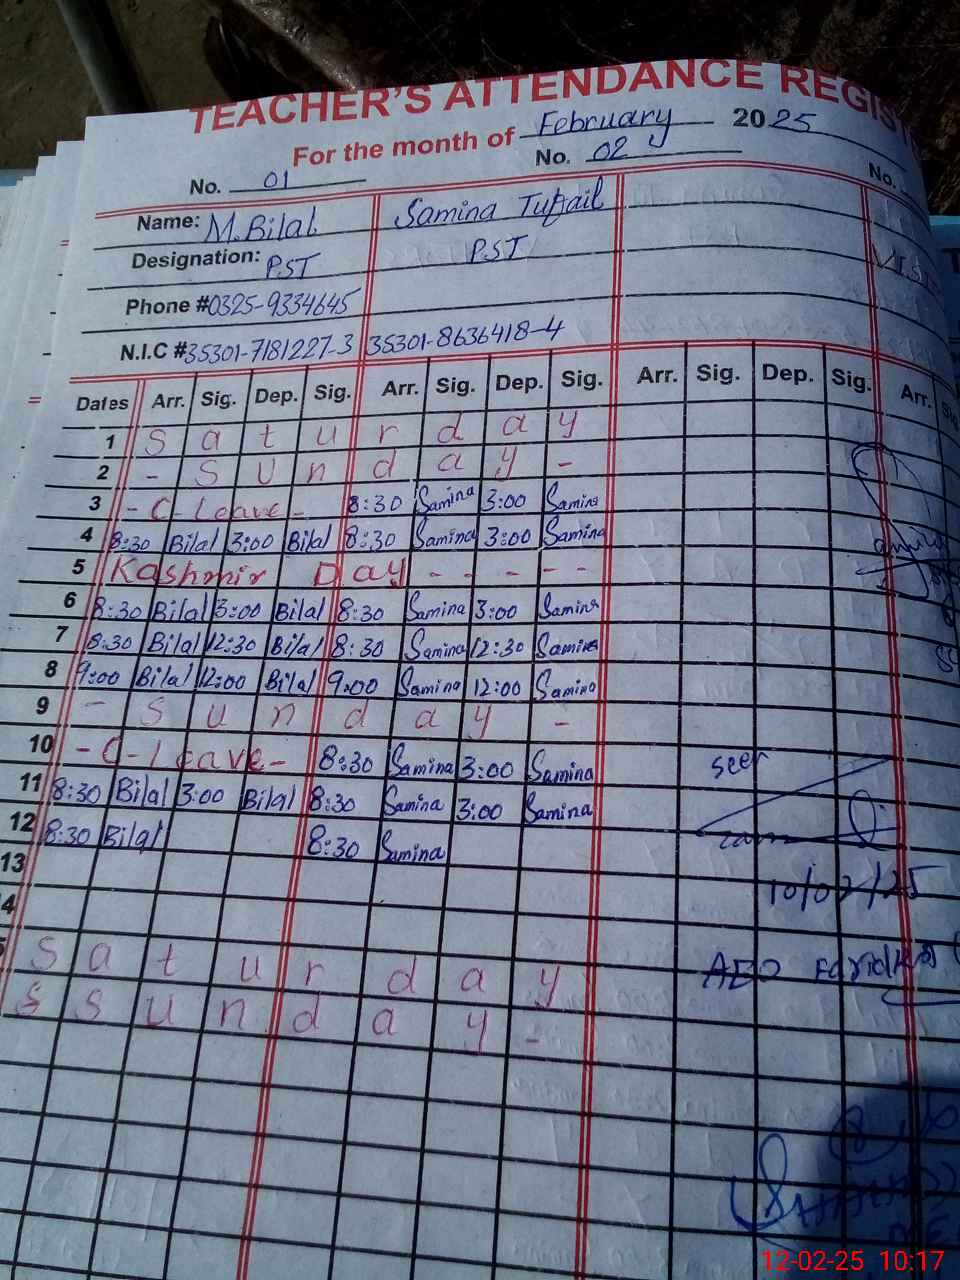 TEACHER'S ATTENDANCE REGIS
For the month of February 2025
No. 01 No. 02 No.
Name: M.Bilal Samina Tufail
Designation: PST PST
Phone #0325-9334645
N.I.C #35301-7181227-3 35301-8636418-4
Dates Arr. Sig. Dep. Sig. Arr. Sig. Dep. Sig. Arr. Sig. Dep. Sig. Arr.
1 S a t u r d a y
2 - S u n d a y -
3 - C-Leave - 8:30 Samina 3:00 Samina
4 8:30 Bilal 3:00 Bilal 8:30 Samina 3:00 Samina
5 Kashmir Day - - - - -
6 8:30 Bilal 3:00 Bilal 8:30 Samina 3:00 Samina
7 8:30 Bilal 12:30 Bilal 8:30 Samina 12:30 Samina
8 9:00 Bilal 12:00 Bilal 9:00 Samina 12:00 Samina
9 - S u n d a y -
10 - C-Leave - 8:30 Samina 3:00 Samina seen
11 8:30 Bilal 3:00 Bilal 8:30 Samina 3:00 Samina
12 8:30 Bilal 8:30 Samina
13 10/02/25
4
S a t u r d a y AEO
S S u n d a y -
12-02-25 10:17